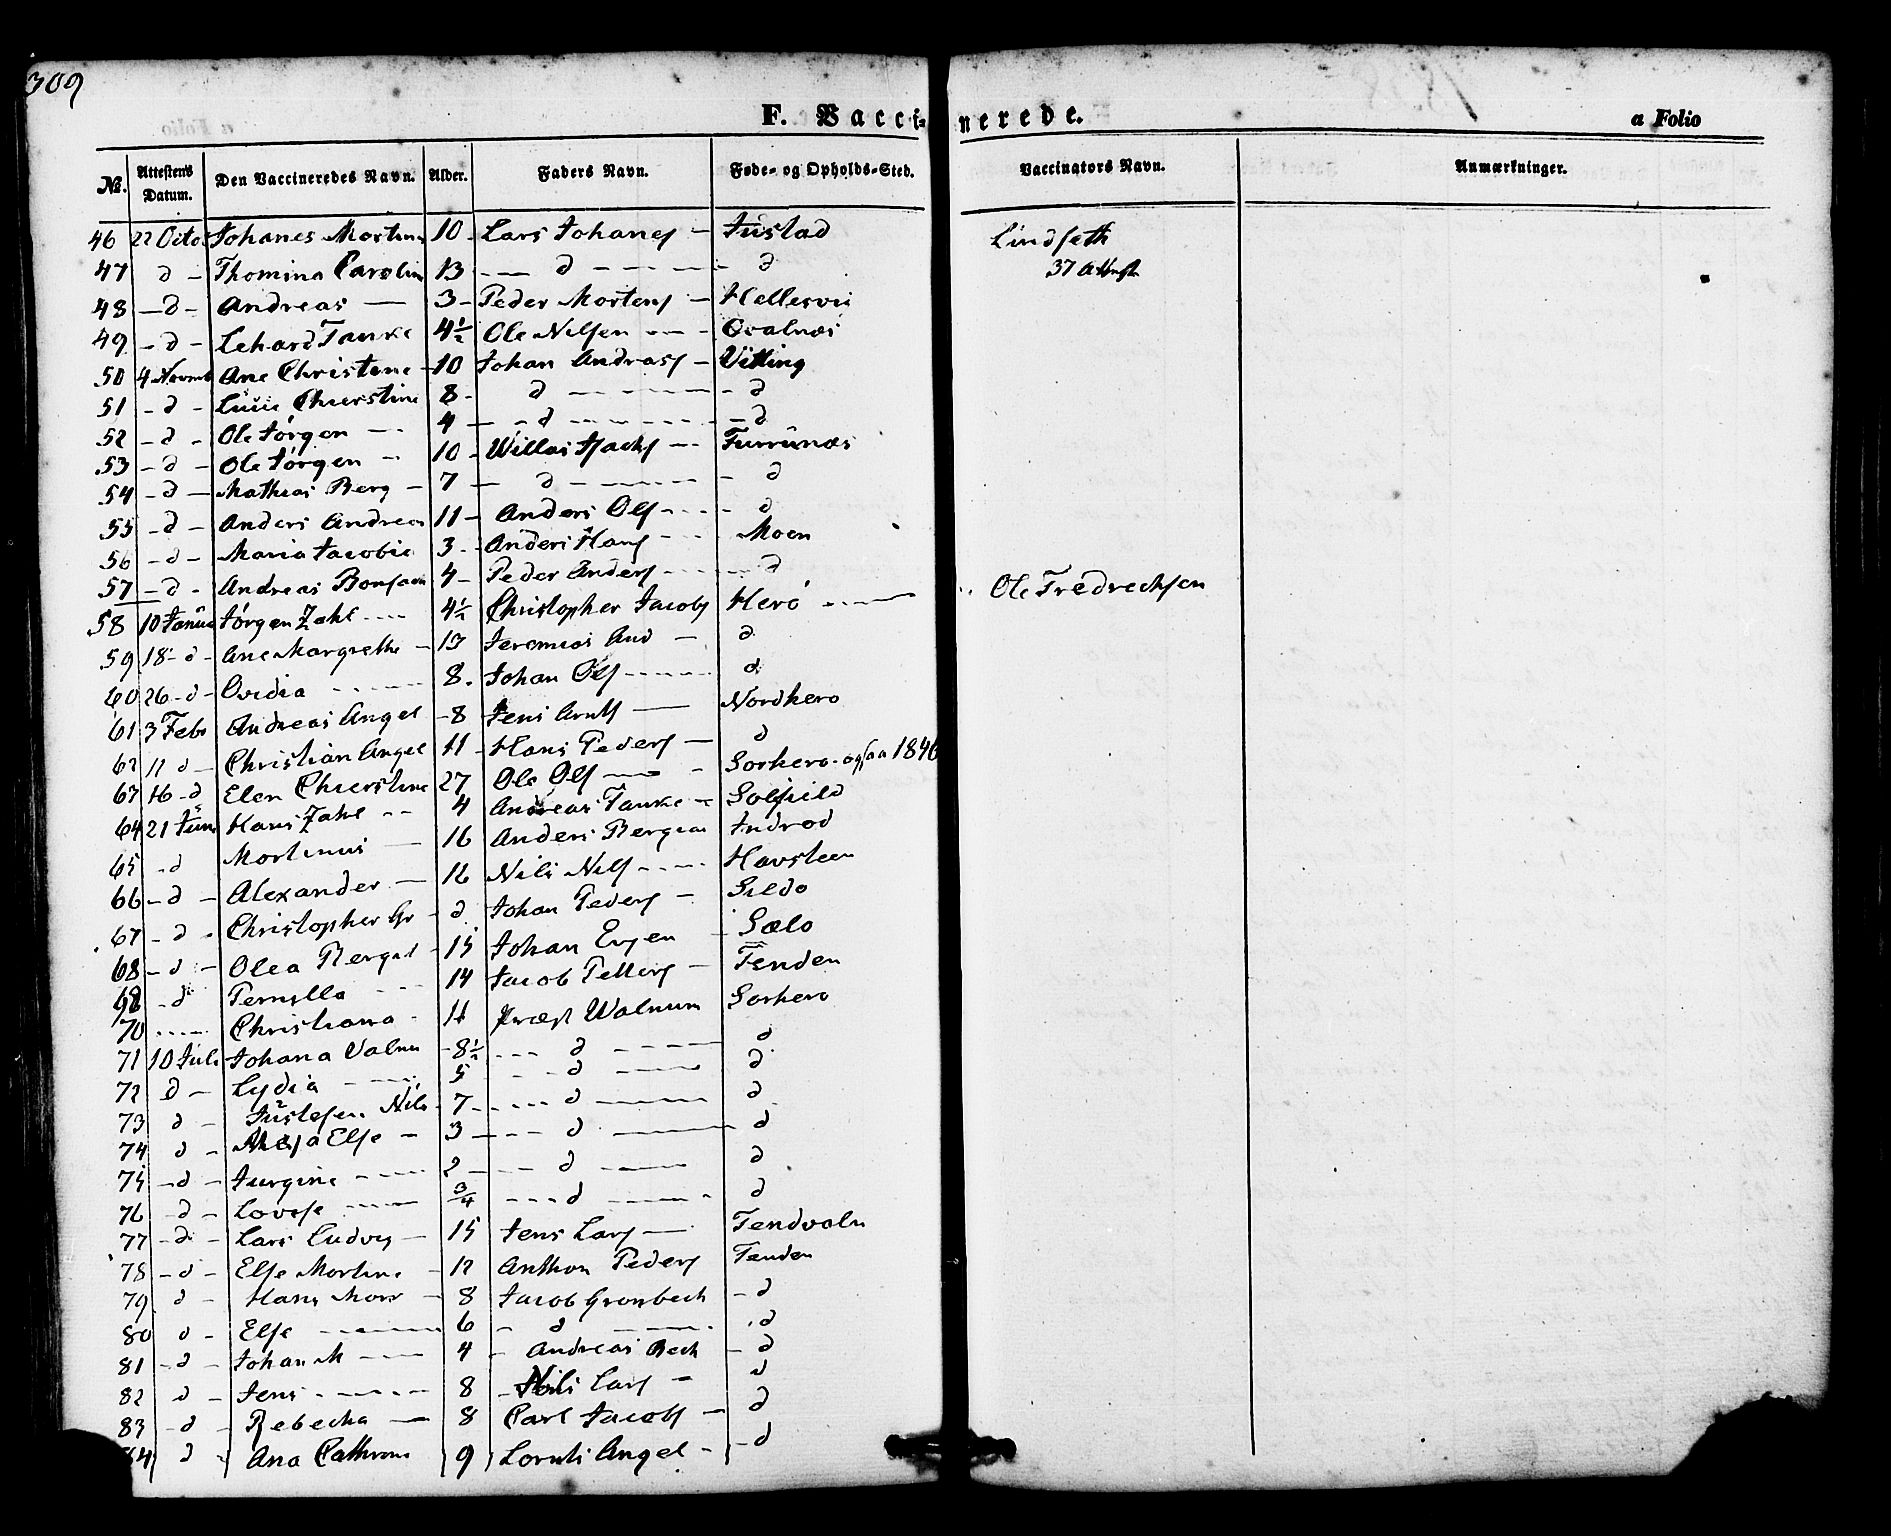 309
F. Vaccinerede.
a Folio
No. Attestens Datum. Den Vaccineredes Navn. Alder. Faders Navn. Føde- og Opholds-Sted. Vaccinators Navn. Anmærkninger.
46 22 Octo Johanes Mortinu 10 Lars Johanes - Justad Lindseth
47 d - Thomina Carolin 13 - d - d 37 Attest
48 - d - Andreas - 3 - Peder Mortens - Hellesvii
49 - d - Lehard Tanke 4½ Ole Nilsen - Qvalnæs
50 4 Novmb Ane Christene - 10 Johan Andrass - Vitting
51 - d - Chierstine 8 - d - d
52 - d - Ole Jörgen - 4 - d - d
53 - d - Ole Jörgen - 10 - Willas - Furrunæs
54 - d - Mathias Berg - 7 - d - d
55 - d - Anders Andreas 11 - Anders Ols - d
56 - d - Maria Jacobie 3 - Anders Hans - Moen
57 - d - Andreas 4 - Peder Anders - d
58 10 Janua Jörgen Zahl - 4½ Christopher Jacobs Herö - Ole Fredrechsen
59 18 - d - Ane Margrethe - 13 Jeremias And - d
60 26 - d - Ovidia - 8. Johan Ols - d
61 3 Feb Andreas Angel - 8 Jens - Nordhero
62 11 d - Christian Angel 11 - Hans Peders - d
63 16 - d Elen Chierstine 27 Ole Ols - Sorhero - ogsaa 1846
64 21 Jun Hans Zahl - 4 Andreas Tanke - Solfield
65 - d Mortinus - 16 Anders Bergeas Indrod
66 - d - Alexander - 16 Nils Nils - Havsteen
67 - d - Christopher Gr - d Johan Peders - Sildo
68 - d - Olea Berget - 15 Johan - Sælo
69 - d Pernilla - 14 Jacob Petters - Tenden
70 - Christiana - 11 Præst Walnum Sorhero
71 10 Juli Johana Valnu - 8½ - d - d
72 d - Lydia - 5 - d - d
73 d - Nils - 7 - d - d
74 d - Else - 3 - d - d
75 - d - Jurgine - 2 - d - d
76 - d - Lovise - ¾ - d - d
77 - d - Lars Ludvig - 15 Jens Lars - Tendvaln
78 - d - Else Mortine - 12 Anthon Peders Tenden
79 d - Hans - 8 Jacob Gronbech - d
80 d - Else - 6 - d - d
81 - d - Johan M - 4 - Andreas Bech - d
82 d - Jens - 8 - Nils Lars - d
83 - d - Rebecka - 8 Carl Jacobs - d
84 d - Ana Cathrine 9 Angel - d